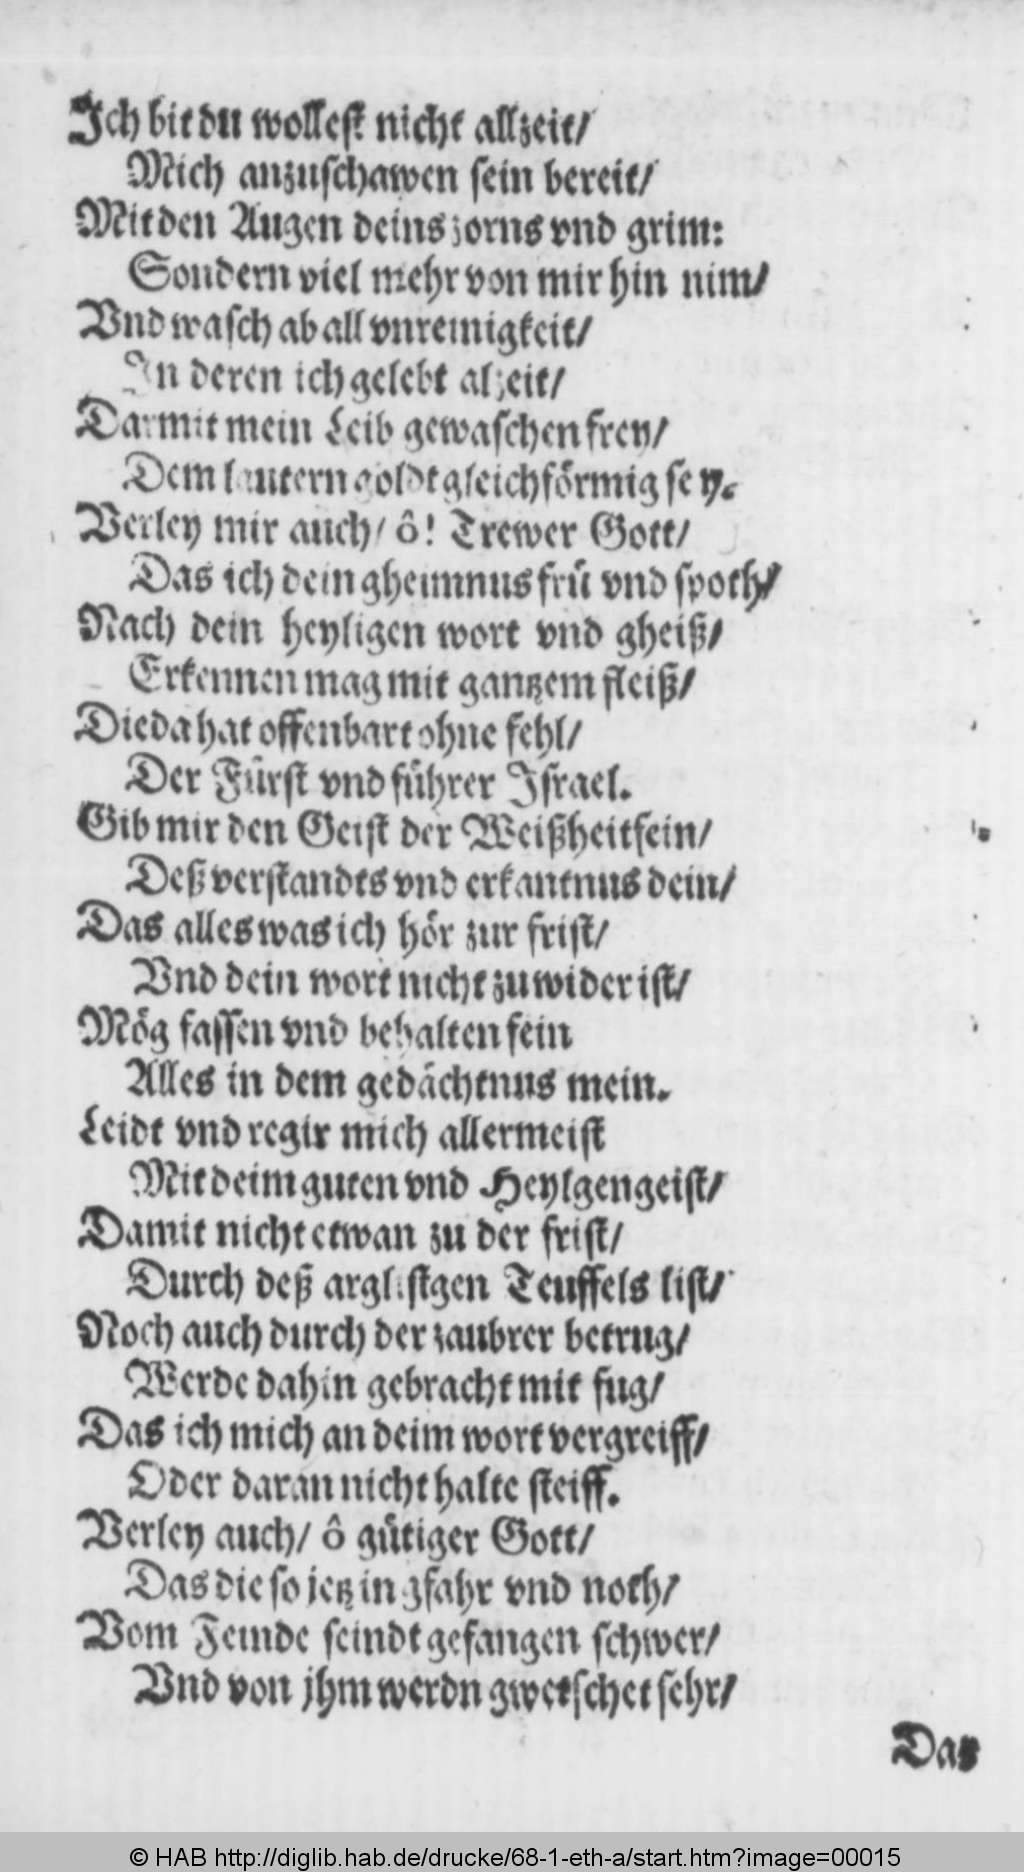 Ich bit du wollest nicht allzeit/
Mich anzuschawen sein bereit/
Mit den Augen deins zorns vnd grim:
Sondern viel mehr von mir hin nim/
Vnd wasch ab all vnreinigkeit/
In deren ich gelebt alzeit/
Darmit mein Leib gewaschen frey/
Dem lautern goldt gleichförmig sey.
Verley mir auch/ ô! Trewer Gott/
Das ich dein gheimnus frü vnd spoth/
Nach dein heyligen wort vnd gheiß/
Erkennen mag mit gantzem fleiß/
Die da hat offenbart ohne fehl/
Der Fürst vnd führer Israel.
Gib mir den Geist der Weißheit fein/
Deß verstandts vnd erkantnus dein/
Das alles was ich hör zur frist/
Vnd dein wort nicht zu wider ist/
Mög fassen vnd behalten fein
Alles in dem gedächtnus mein.
Leidt vnd regir mich allermeist
Mit deim guten vnd Heylgen geist/
Damit nicht etwan zu der frist/
Durch deß arglistgen Teuffels list/
Noch auch durch der zaubrer betrug/
Werde dahin gebracht mit fug/
Das ich mich an deim wort vergreiff/
Oder daran nicht halte steiff.
Verley auch/ ô gütiger Gott/
Das die so jetz in gfahr vnd noth/
Vom Feinde seindt gefangen schwer/
Vnd von jhm werdn gwetschet sehr/
Das
© HAB http://diglib.hab.de/drucke/68-1-eth-a/start.htm?image=00015